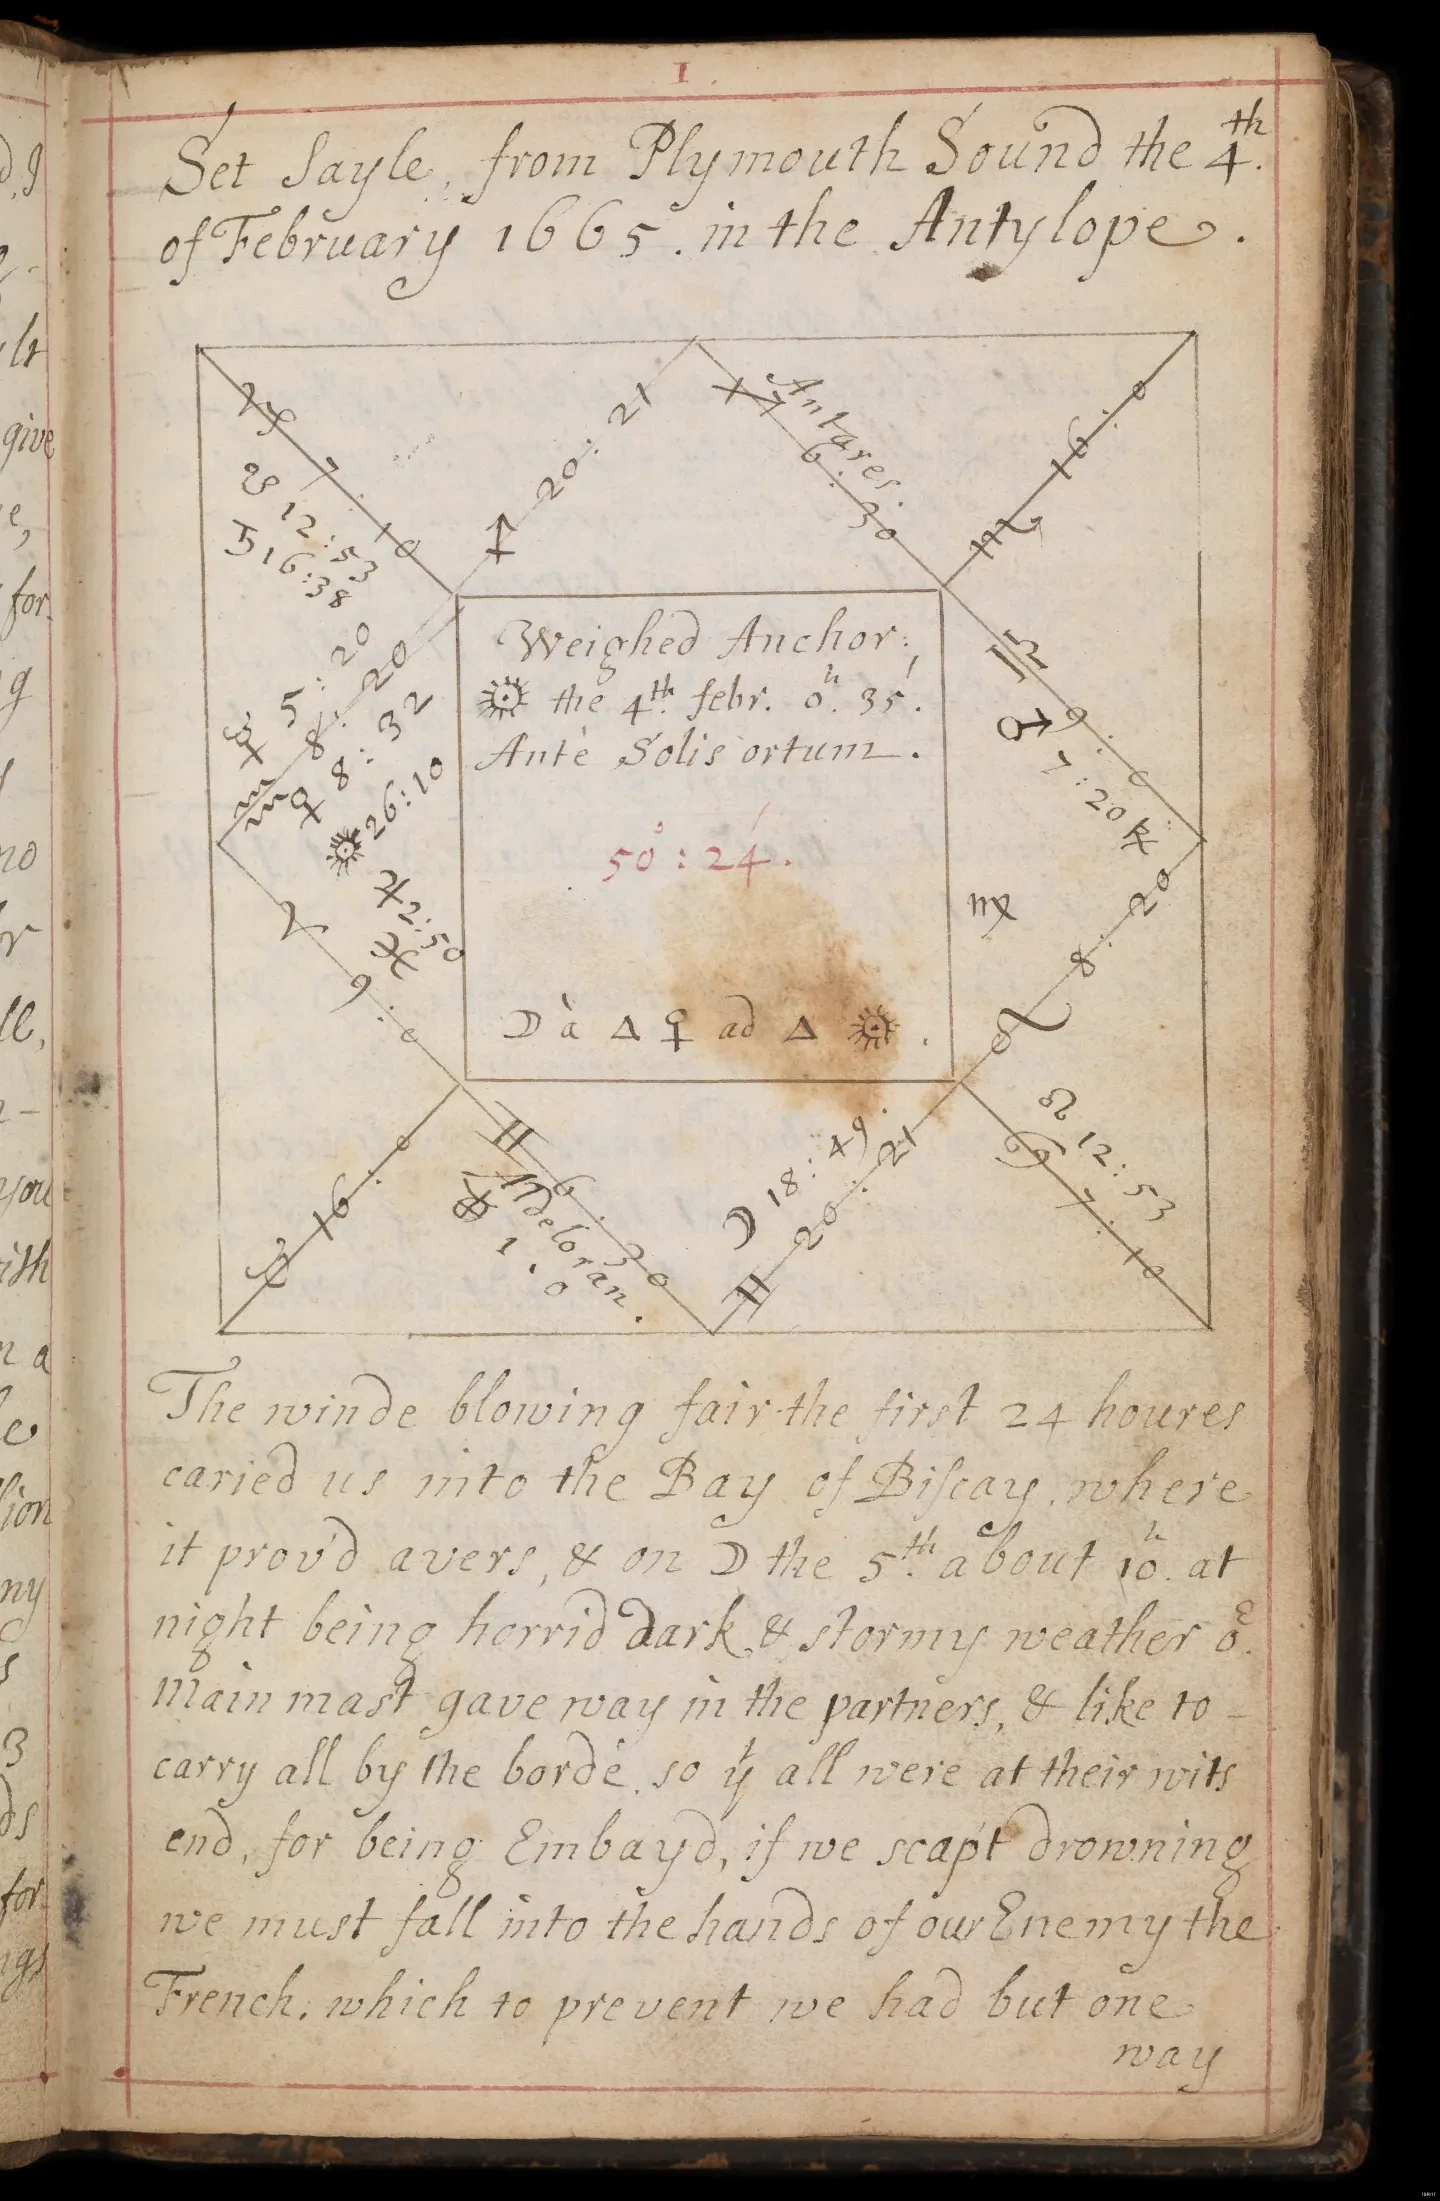 I.
Set Sayle, from Plymouth Sound the 4th.
of February 1665. in the Antylope.
♑ 7:10
☋ 12:53
♄ 16:38
♐ 20:21
♐ 6:30
Antares.
♏ 16:0
♎ 9:0
♂ 7:20 ℞
♍
♌ 8:20
☊ 12:53
♋ 7:10
☽ 18:49.
♊ 20:21
♊ 6:30
Aldeloran.
1.0
♉ 16:0
♈ 9:0
♃ 2:50
♓
☿ 5:20
♒ 8:20
♀ 8:32
☉ 26:10
Weighed Anchor:
☉ the 4th. febr. 0h. 35'.
Ante Solis ortum.
50°:24'.
☽ à △ ♀ ad △ ☉.
The winde blowing fair the first 24 houres
caried us into the Bay of Biscay, where
it prov'd avers, & on ☽ the 5th. about 10h. at
night being horrid dark & stormy weather oE.
main mast gave way in the partners, & like to –
carry all by the borde, so yt all were at their wits
end, for being Embayd, if we scap't drowning
we must fall into the hands of our Enemy the
French, which to prevent we had but one
way